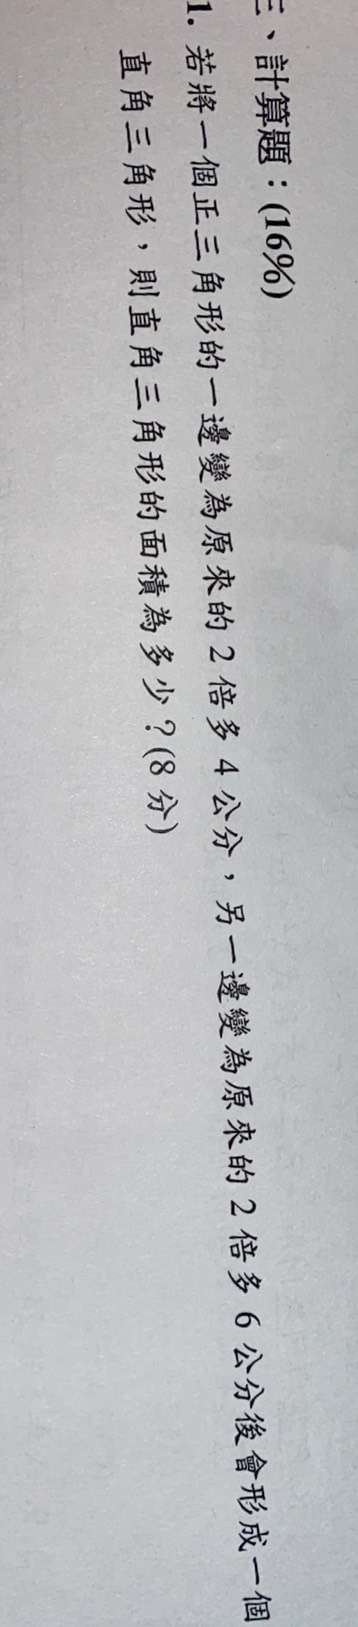 三、計算題：(16%)
1. 若將一個正三角形的一邊變為原來的 2 倍多 4 公分，另一邊變為原來的 2 倍多 6 公分後會形成一個
直角三角形，則直角三角形的面積為多少？(8 分)